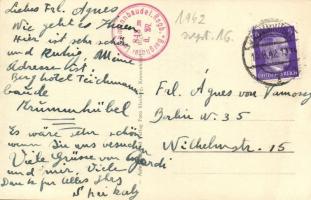 Liebes Frl. Agnes
Wie geht es Ihnen
Hier ist sehr schön
und Ruhig, Meine
Adresse ist,
Berghotel Teichmann
baude
Krummhübel
Es wäre sehr schön
wenn Sie uns besuchen
Viele Grüsse von
und mir. Viele
Dank für Alles Ihre
1942
sept. 16.
Frl. Agnes von
Berlin W. 35
Wilhelmstr. 15